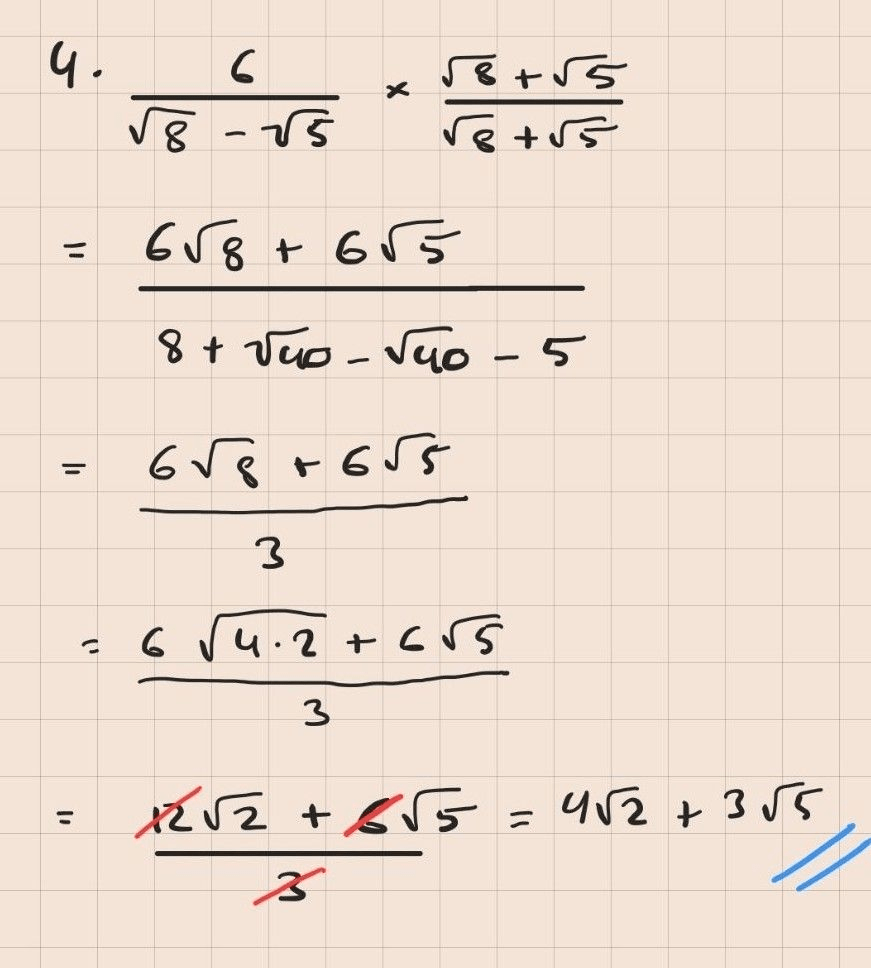 4. 6/(√8 - √5) × (√8 + √5)/(√8 + √5)
= (6√8 + 6√5)/(8 + √40 - √40 - 5)
= (6√8 + 6√5)/3
= (6√(4·2) + 6√5)/3
= (12√2 + 6√5)/3 = 4√2 + 3√5